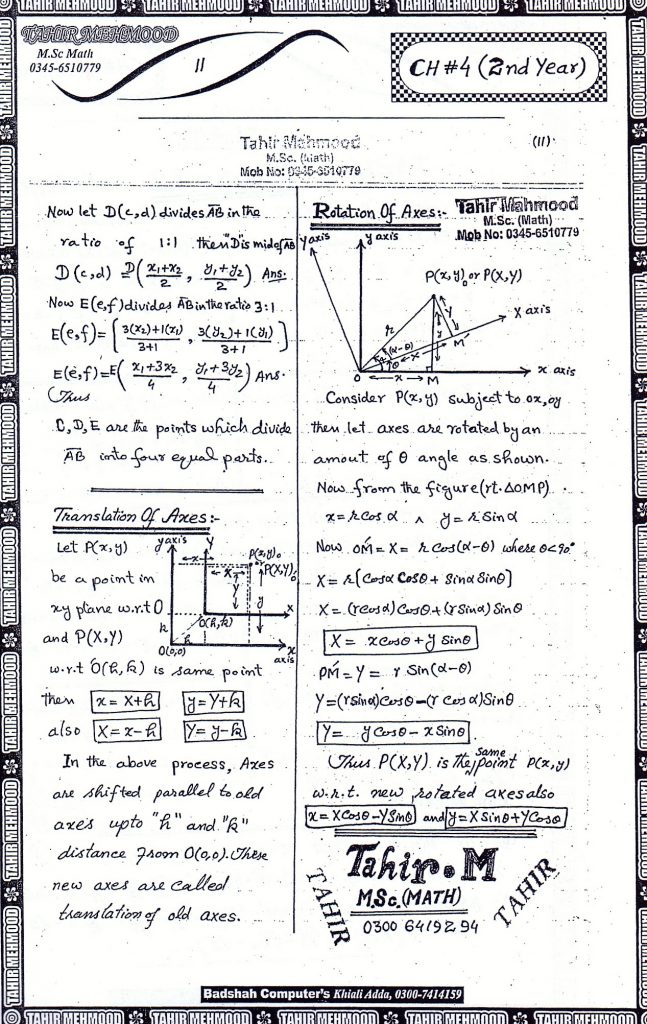 TAHIR MEHMOOD
M.Sc Math
0345-6510779
11
CH #4 (2nd Year)
Tahir Mahmood
M.Sc. (Math)
Mob No: 0345-6510779
(11)
Now let D(c,d) divides AB in the
ratio of 1:1 then "D" is mid of AB
D(c,d) = D((x₁+x₂)/2 , (y₁+y₂)/2) Ans.
Now E(e,f) divides AB in the ratio 3:1
E(e,f) = [(3(x₂)+1(x₁))/(3+1) , (3(y₂)+1(y₁))/(3+1)]
E(e,f) = E((x₁+3x₂)/4 , (y₁+3y₂)/4) Ans.
Thus
C, D, E are the points which divide
AB into four equal parts.
Translation Of Axes:-
Let P(x,y)
be a point in
xy plane w.r.t O
and P(X,Y)
w.r.t Ó(h,k) is same point
then x = X+h y = Y+k
also X = x-h Y = y-k
y axis
Y
P(x,y) or
P(X,Y)
x
X
Y
y
X
O(h,k)
k
h
O(0,0)
x
axis
In the above process, Axes
are shifted parallel to old
axes upto "h" and "k"
distance from O(0,0). These
new axes are called
translation of old axes.
Rotation Of Axes:-
Tahir Mahmood
M.Sc. (Math)
Mob No: 0345-6510779
Y axis
y axis
P(x,y) or P(X,Y)
X axis
r
Y
y
(α-θ)
α
θ
X
M´
O
x
M
x axis
Consider P(x,y) subject to ox, oy
then let axes are rotated by an
amout of θ angle as shown.
Now from the figure (rt. ΔOMP)
x = r cos α ∧ y = r sin α
Now OḾ = X = r cos(α-θ) where θ<90°
X = r[cosα cosθ + sinα sinθ]
X = (r cosα) cosθ + (r sinα) sinθ
X = x cosθ + y sinθ
PḾ = Y = r sin(α-θ)
Y = (r sinα) cosθ - (r cosα) sinθ
Y = y cosθ - x sinθ
Thus P(X,Y) is the same point P(x,y)
w.r.t. new rotated axes also
x = X cosθ - Y sinθ and y = X sinθ + Y cosθ
Tahir.M
M.Sc.(MATH)
0300 6419294
TAHIR
TAHIR
Badshah Computer's Khiali Adda, 0300-7414159